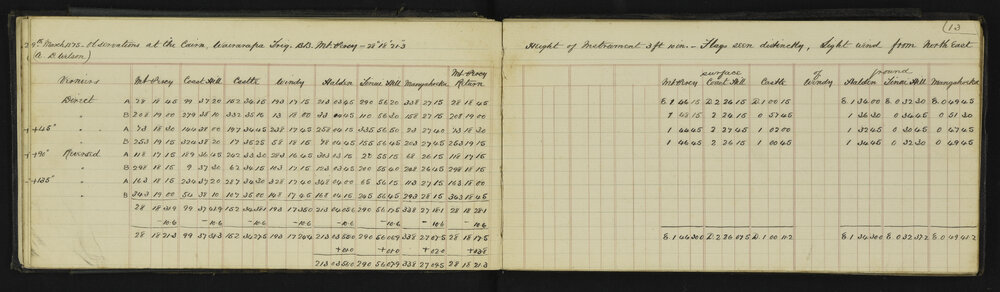 (13
29th March 1875 - Observations at the Cairn, Wairarapa Trig. B.B. Mt Percy = 28° 18' 21.3
Height of Instrument 3 ft 10 in. - Flags seen distinctly, Light wind from North East
(A. D. Wilson)
surface of ground
Verniers Mt Percy Coast Hill Castle Windy Haldon Mangahuka Mt Percy Return
Mt Percy Coast Hill Castle Windy Haldon
Direct A 28 18 45 99 37 20 152 34 15 193 17 15 213 03 45 290 56 20 338 27 15 28 18 45
E 1 46 15 D 2 26 15 D 1 00 15 E 1 34 00 E 0 32 30 E 0 49 45
" B 208 19 00 279 38 10 332 35 15 13 18 00 33 04 45 110 56 30 158 27 15 208 19 00
1 48 15 2 26 15 0 57 45 1 36 30 0 34 45 0 51 30
+45° " A 73 18 30 144 38 00 197 34 45 238 17 45 258 04 15 335 56 50 23 27 40 73 18 30
1 44 45 2 27 45 1 02 00 1 32 45 0 30 45 0 47 45
" B 253 19 15 324 38 20 17 35 25 58 18 15 78 04 45 155 56 45 203 27 45 253 19 15
1 46 45 2 26 15 1 00 45 1 34 45 0 32 30 0 49 45
+90° Reversed A 118 17 15 189 36 45 242 33 30 283 16 45 303 03 15 20 55 15 68 26 15 118 17 15
" B 298 18 15 9 37 30 62 34 15 103 17 15 123 03 45 200 55 40 248 26 45 298 18 15
+135° " A 163 18 15 234 37 20 287 34 30 328 17 40 348 04 00 65 56 15 113 27 15 163 18 00
" B 343 19 00 54 38 10 107 35 00 148 17 45 168 04 15 245 56 45 293 28 15 343 18 45
28 18 31.9 99 37 48.9 152 34 38.1 193 17 35.0 213 04 05.6 290 56 17.5 338 27 18.1 28 18 28.1
-10.6 -10.6 -10.6 -10.6 -10.6 -10.6 -10.6 -10.6
28 18 21.3 99 37 38.3 152 34 27.5 193 17 24.4 213 03 55.0 290 56 06.9 338 27 07.5 28 18 17.5
E 1 46 30.0 D 2 26 37.5 D 1 00 11.2 E 1 34 30.0 E 0 32 37.2 E 0 49 41.2
+01.0 +01.0 +02.0 +03.8
213 03 56.0 290 56 07.9 338 27 09.5 28 18 21.3